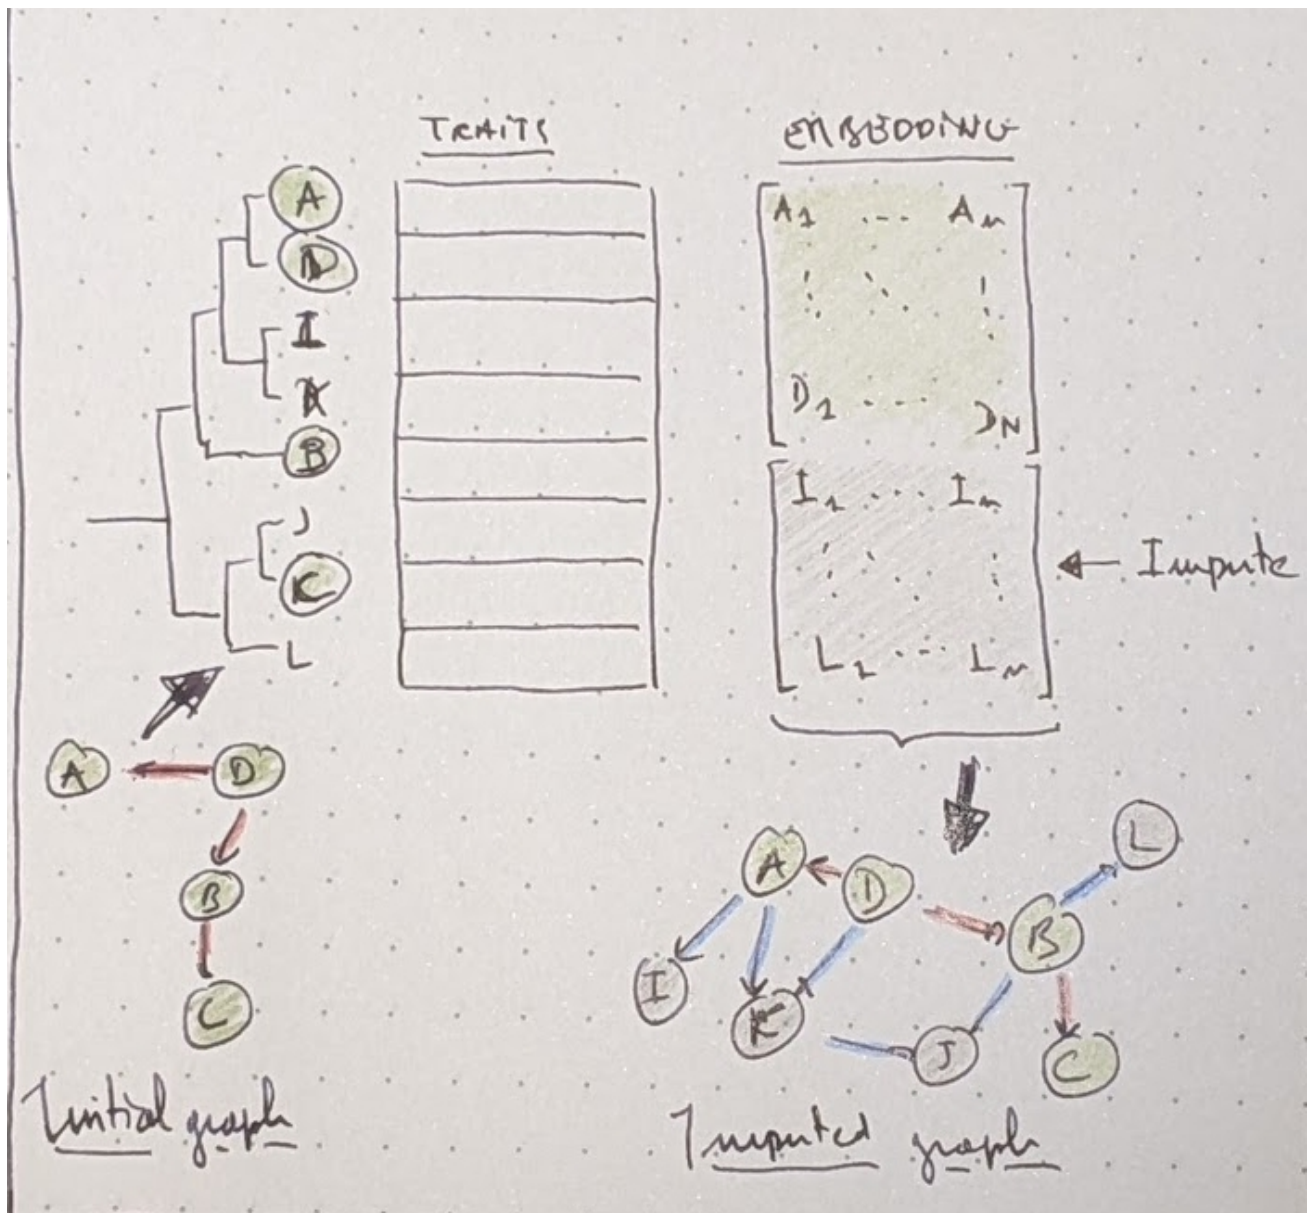 TRAITS
EMBEDDING
A
D
I
K
B
J
C
L
A1 ... An
D1 ... DN
I1 ... In
L1 ... Ln
← Impute
A
D
B
C
Initial graph
A
D
B
L
I
K
J
C
Imputed graph